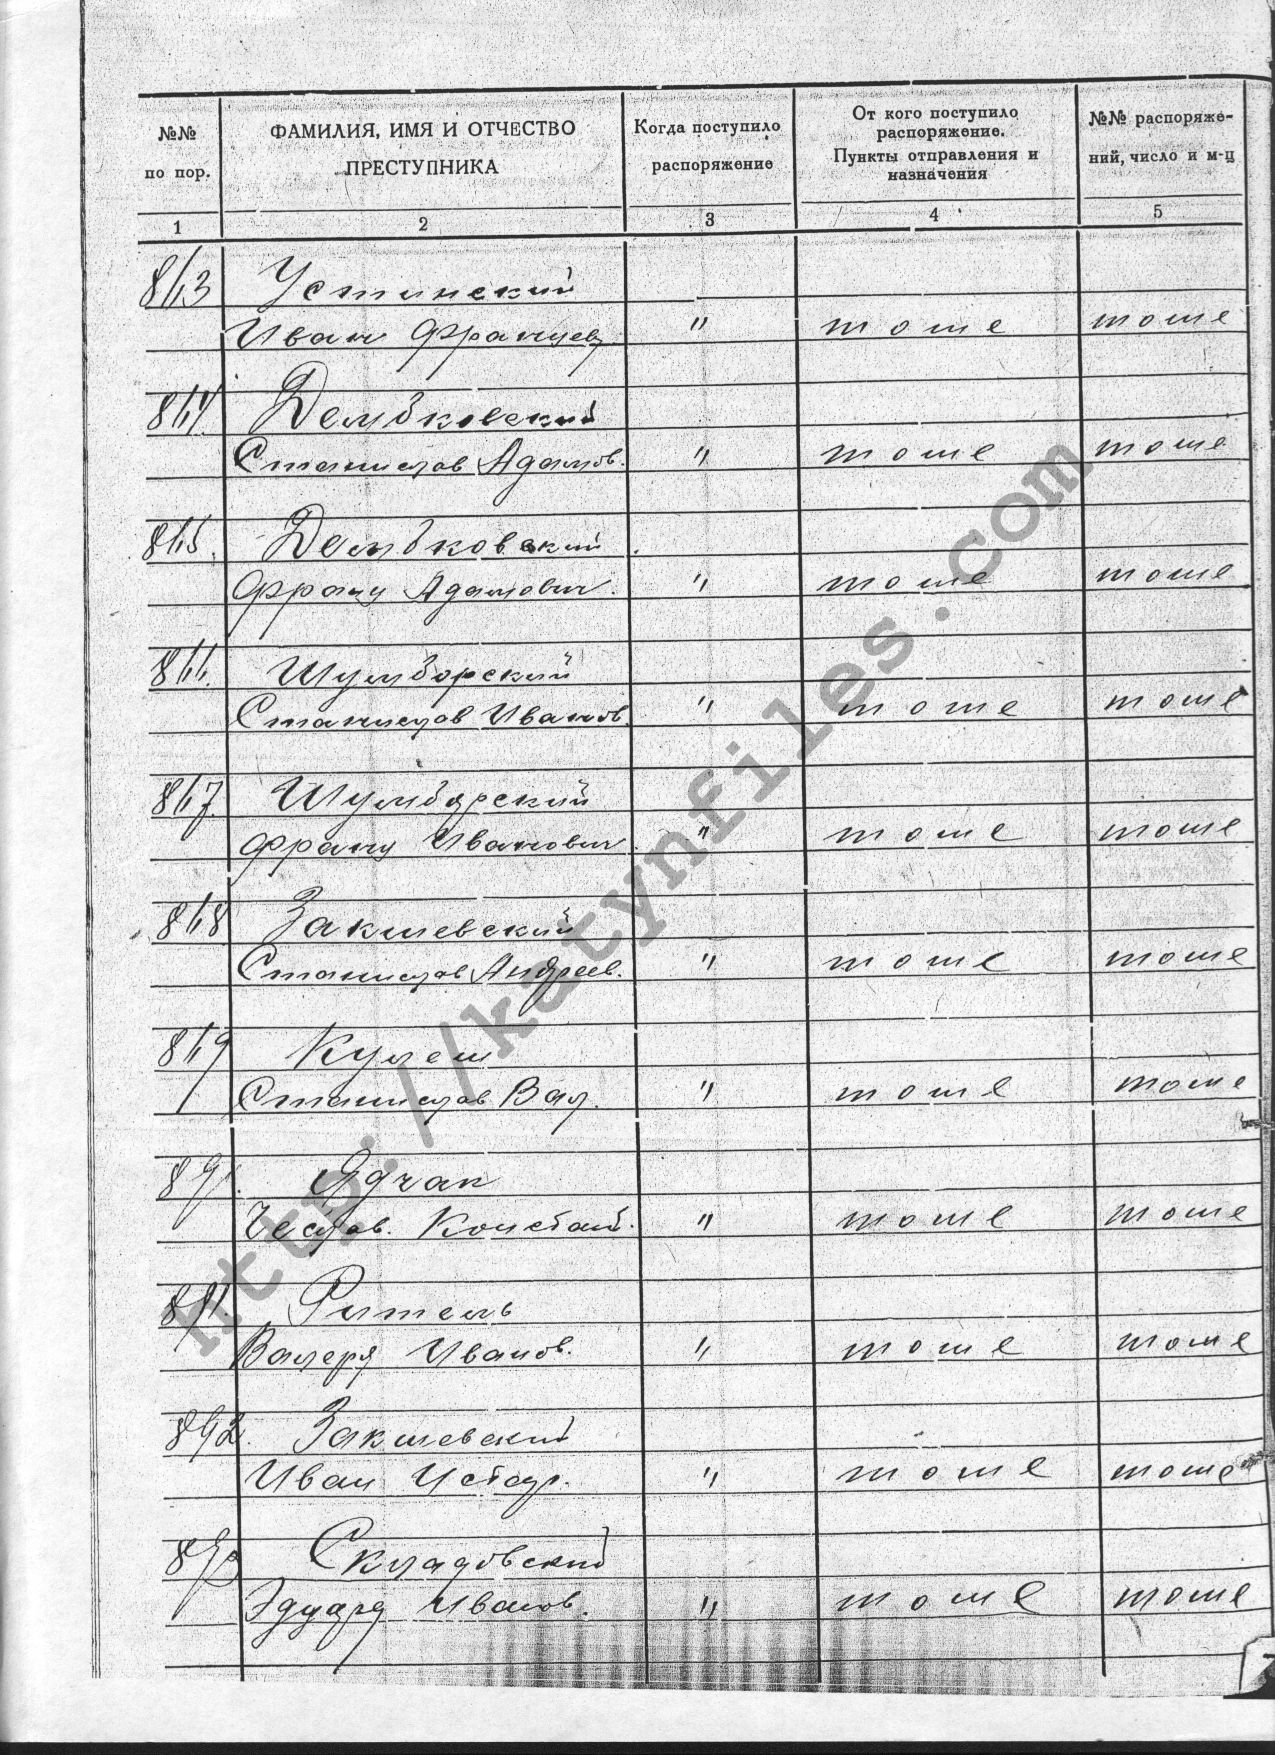 №№ по пор.
ФАМИЛИЯ, ИМЯ И ОТЧЕСТВО ПРЕСТУПНИКА
Когда поступило распоряжение
От кого поступило распоряжение. Пункты отправления и назначения
№№ распоряже-ний, число и м-ц
1 2 3 4 5
863 Устинский
Иван Францев. " тоже тоже
864 Дембковский
Станислав Адамов. " тоже тоже
865. Дембковский
Франц Адамович. " тоже тоже
866. Шумборский
Станислав Иванов. " тоже тоже
867. Шумборский
Франц Иванович " тоже тоже
868 Закшевский
Станислав Андреев. " тоже тоже
869 Кулеш
Станислав Вал. " тоже тоже
Ядчак
Чеслав. Констант. " тоже тоже
Рытель
Иванов. " тоже тоже
892. Закшевский
Иван " тоже тоже
Складовский
Эдуард Иванов. " тоже тоже
http://katynfiles.com